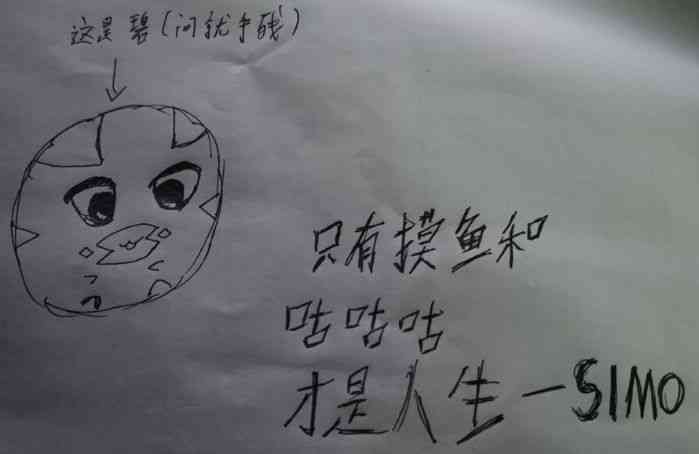 这是碧(问就手残)
只有摸鱼和
咕咕咕
才是人生-SIMO